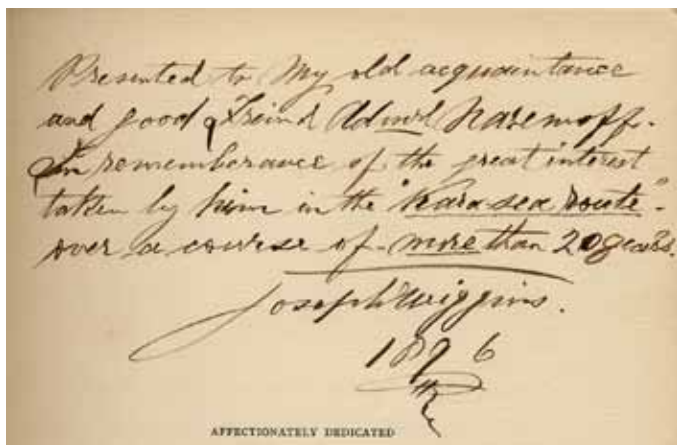 Presented to My old acquaintance
and good Freind Admrl Nazemoff.
In rememborance of the great interest
taken by him in the "Kara sea route" -
over a course of more than 20 years.
Joseph Wiggins.
1896
AFFECTIONATELY DEDICATED